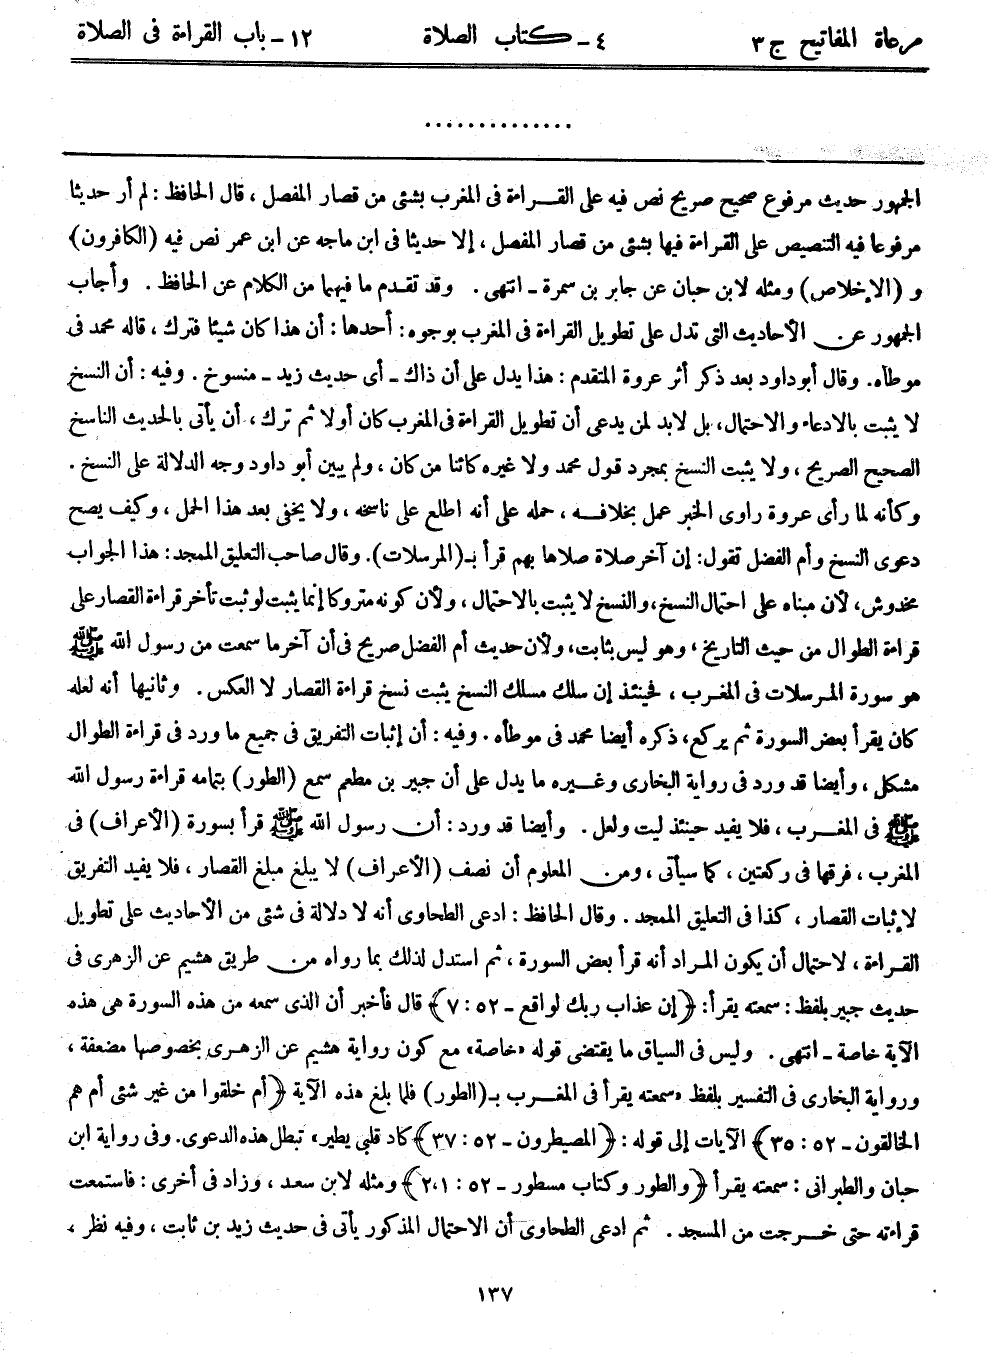 مرعاة المفاتيح ج ٣ ٤ ـ كتاب الصلاة ١٢ ـ باب القراءة فى الصلاة
..............
الجمهور حديث مرفوع صحيح صريح نص فيه على القراءة فى المغرب بشئى من قصار المفصل ، قال الحافظ : لم أر حديثا
مرفوعا فيه التنصيص على القراءة فيها بشئى من قصار المفصل ، إلا حديثا فى ابن ماجه عن ابن عمر نص فيه (الكافرون)
و (الإخلاص) ومثله لابن حبان عن جابر بن سمرة ـ انتهى . وقد تقدم ما فيهما من الكلام عن الحافظ . وأجاب
الجمهور عن الأحاديث التى تدل على تطويل القراءة فى المغرب بوجوه : أحدها : أن هذا كان شيئا فترك ، قاله محمد فى
موطأه . وقال أبو داود بعد ذكر أثر عروة المتقدم : هذا يدل على أن ذاك ـ أى حديث زيد ـ منسوخ . وفيه : أن النسخ
لا يثبت بالادعاء والاحتمال، بل لابد لمن يدعى أن تطويل القراءة فى المغرب كان أولا ثم ترك ، أن يأتى بالحديث الناسخ
الصحيح الصريح ، ولا يثبت النسخ بمجرد قول محمد ولا غيره كائنا من كان ، ولم يبين أبو داود وجه الدلالة على النسخ .
وكأنه لما رأى عروة راوى الخبر عمل بخلافه ، حمله على أنه اطلع على ناسخه ، ولا يخفى بعد هذا الحمل ، وكيف يصح
دعوى النسخ وأم الفضل تقول: إن آخر صلاة صلاها بهم قرأ بـ(المرسلات). وقال صاحب التعليق الممجد: هذا الجواب
مخدوش، لأن مبناه على احتمال النسخ، والنسخ لا يثبت بالاحتمال ، ولأن كونه متروكا إنما يثبت لو ثبت تأخر قراءة القصار على
قراءة الطوال من حيث التاريخ ، وهو ليس بثابت، ولأن حديث أم الفضل صريح فى أن آخر ما سمعت من رسول الله ﷺ
هو سورة المرسلات فى المغرب ، فحينئذ إن سلك مسلك النسخ يثبت نسخ قراءة القصار لا العكس . وثانيها أنه لعله
كان يقرأ بعض السورة ثم يركع، ذكره أيضا محمد فى موطأه . وفيه : أن إثبات التفريق فى جميع ما ورد فى قراءة الطوال
مشكل ، وأيضا قد ورد فى رواية البخارى وغيره ما يدل على أن جبير بن مطعم سمع (الطور) بتمامه قراءة رسول الله
ﷺ فى المغرب ، فلا يفيد حينئذ ليت ولعل . وأيضا قد ورد : أن رسول الله ﷺ قرأ بسورة (الأعراف) فى
المغرب ، فرقها فى ركعتين ، كما سيأتى ، ومن المعلوم أن نصف (الأعراف) لا يبلغ مبلغ القصار ، فلا يفيد التفريق
لإثبات القصار ، كذا فى التعليق الممجد . وقال الحافظ : ادعى الطحاوى أنه لا دلالة فى شئى من الأحاديث على تطويل
القراءة ، لاحتمال أن يكون المراد أنه قرأ بعض السورة ، ثم استدل لذلك بما رواه من طريق هشيم عن الزهرى فى
حديث جبير بلفظ : سمعته يقرأ: ﴿إن عذاب ربك لواقع ـ ٥٢ : ٧﴾ قال فأخبر أن الذى سمعه من هذه السورة هى هذه
الآية خاصة ـ انتهى . وليس فى السياق ما يقتضى قوله «خاصة» مع كون رواية هشيم عن الزهرى بخصوصها مضعفة ،
ورواية البخارى فى التفسير بلفظ «سمعته يقرأ فى المغرب بـ(الطور) فلما بلغ هذه الآية ﴿أم خلقوا من غير شئى أم هم
الخالقون ـ ٥٢ : ٣٥﴾ الآيات إلى قوله : ﴿المصيطرون ـ ٥٢ : ٣٧﴾ كاد قلبى يطير، تبطل هذه الدعوى. وفى رواية ابن
حبان والطبرانى : سمعته يقرأ ﴿والطور وكتاب مسطور ـ ٥٢ : ٢،١﴾ ومثله لابن سعد ، وزاد فى أخرى : فاستمعت
قراءته حتى خرجت من المسجد . ثم ادعى الطحاوى أن الاحتمال المذكور يأتى فى حديث زيد بن ثابت ، وفيه نظر ،
١٣٧